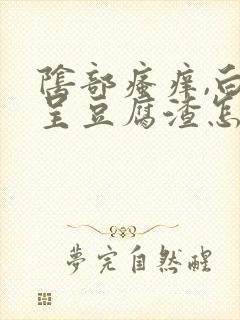 陰部瘙痒,白
呈豆腐渣怎
夢完自然醒